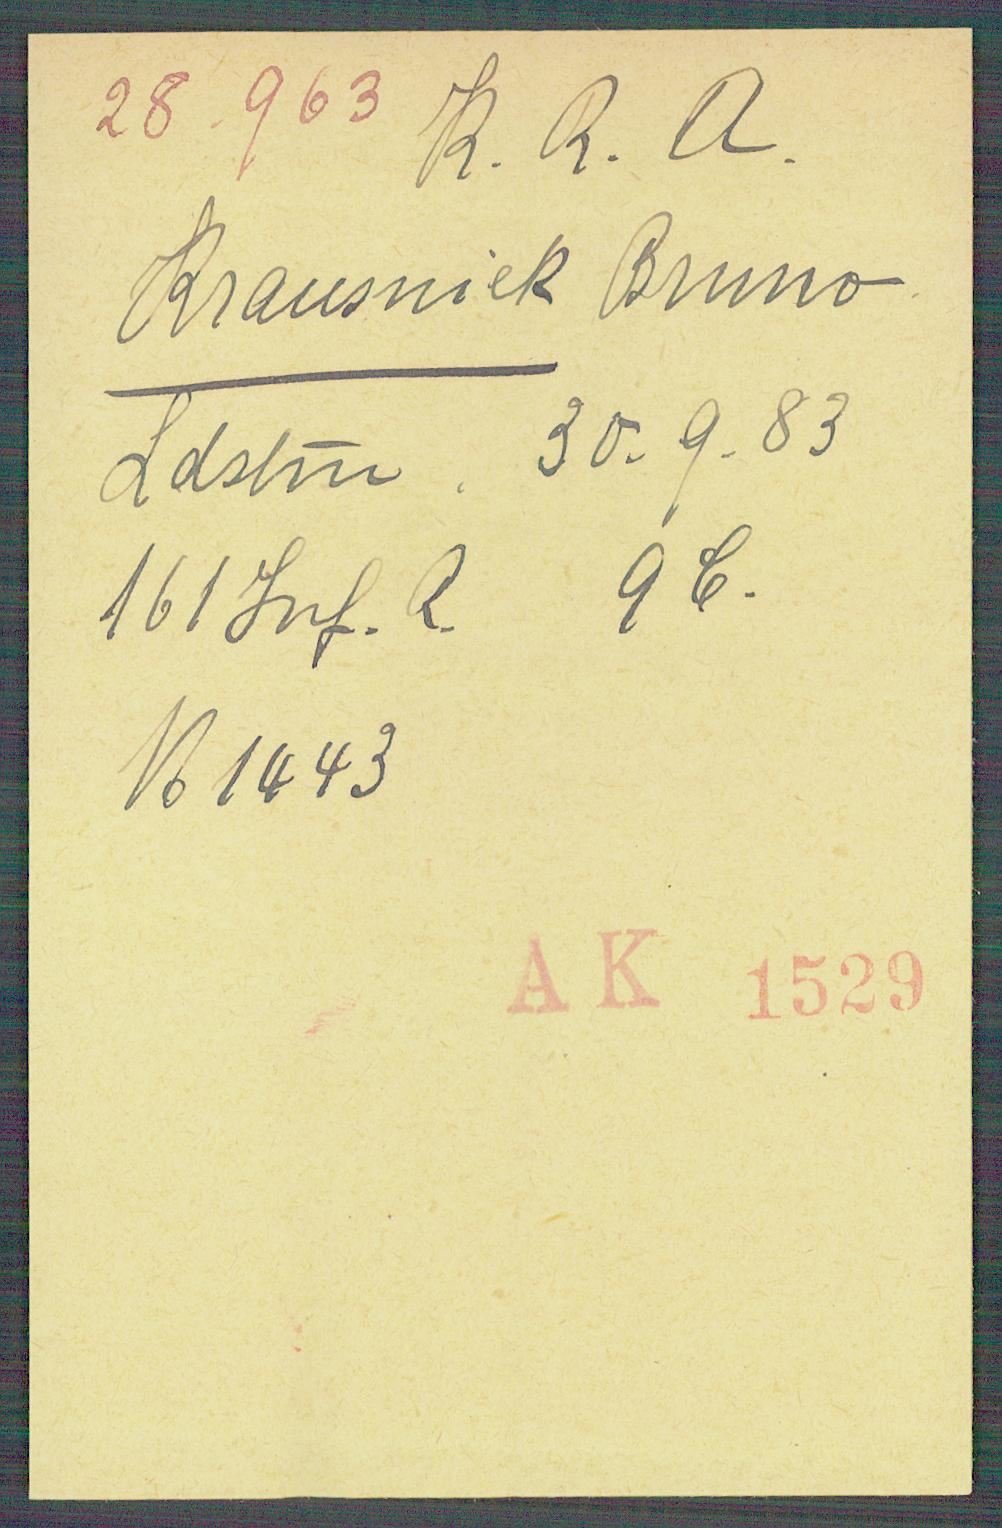 28.963 K. R. A.
Krausniek Bruno
Ldstm̅ . 30.9.83
161 Inf. R. 9 C.
No 1443
A K 1529